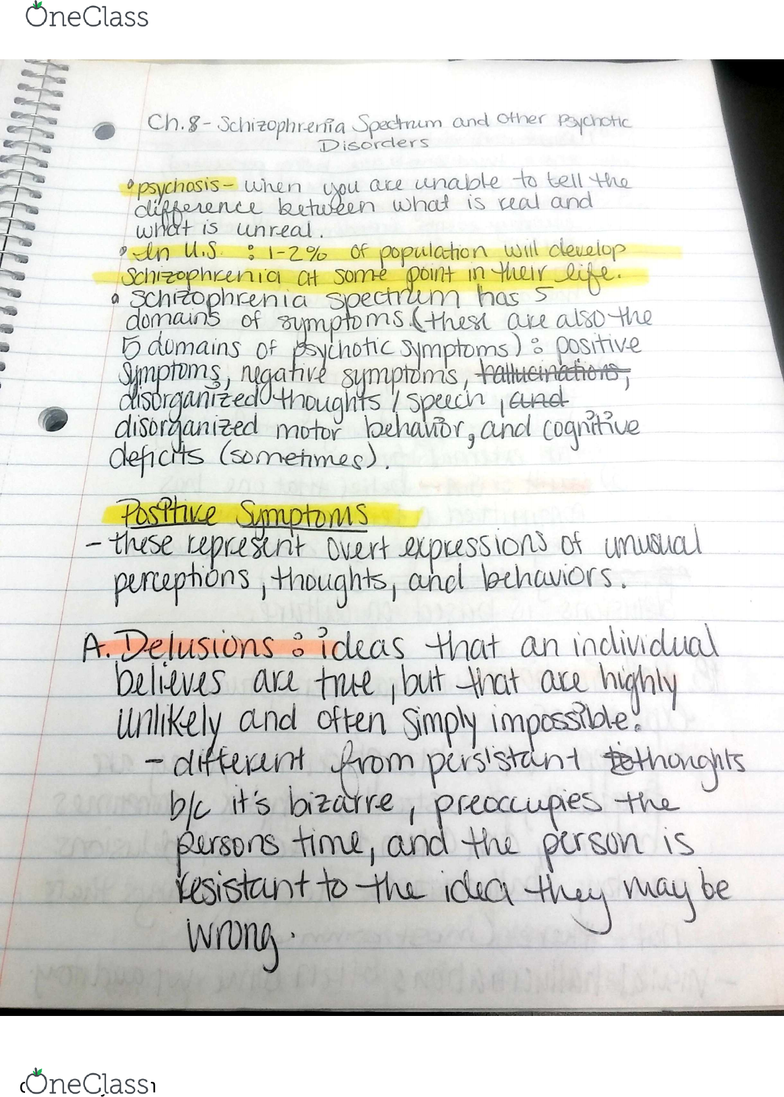 OneClass
Ch.8 - Schizophrenia Spectrum and Other Psychotic
Disorders
• psychosis - when you are unable to tell the
difference between what is real and
what is unreal.
• In U.S. : 1-2% of population will develop
Schizophrenia at some point in their life.
• Schizophrenia spectrum has 5
domains of symptoms (these are also the
5 domains of psychotic symptoms) : positive
symptoms, negative symptoms, hallucinations,
disorganized thoughts / speech, and
disorganized motor behavior, and cognitive
deficits (sometimes).
Positive Symptoms
- these represent overt expressions of unusual
perceptions, thoughts, and behaviors.
A. Delusions : ideas that an individual
believes are true, but that are highly
unlikely and often simply impossible.
- different from persistant thoughts
b/c it's bizarre, preoccupies the
persons time, and the person is
resistant to the idea they may be
wrong.
OneClass